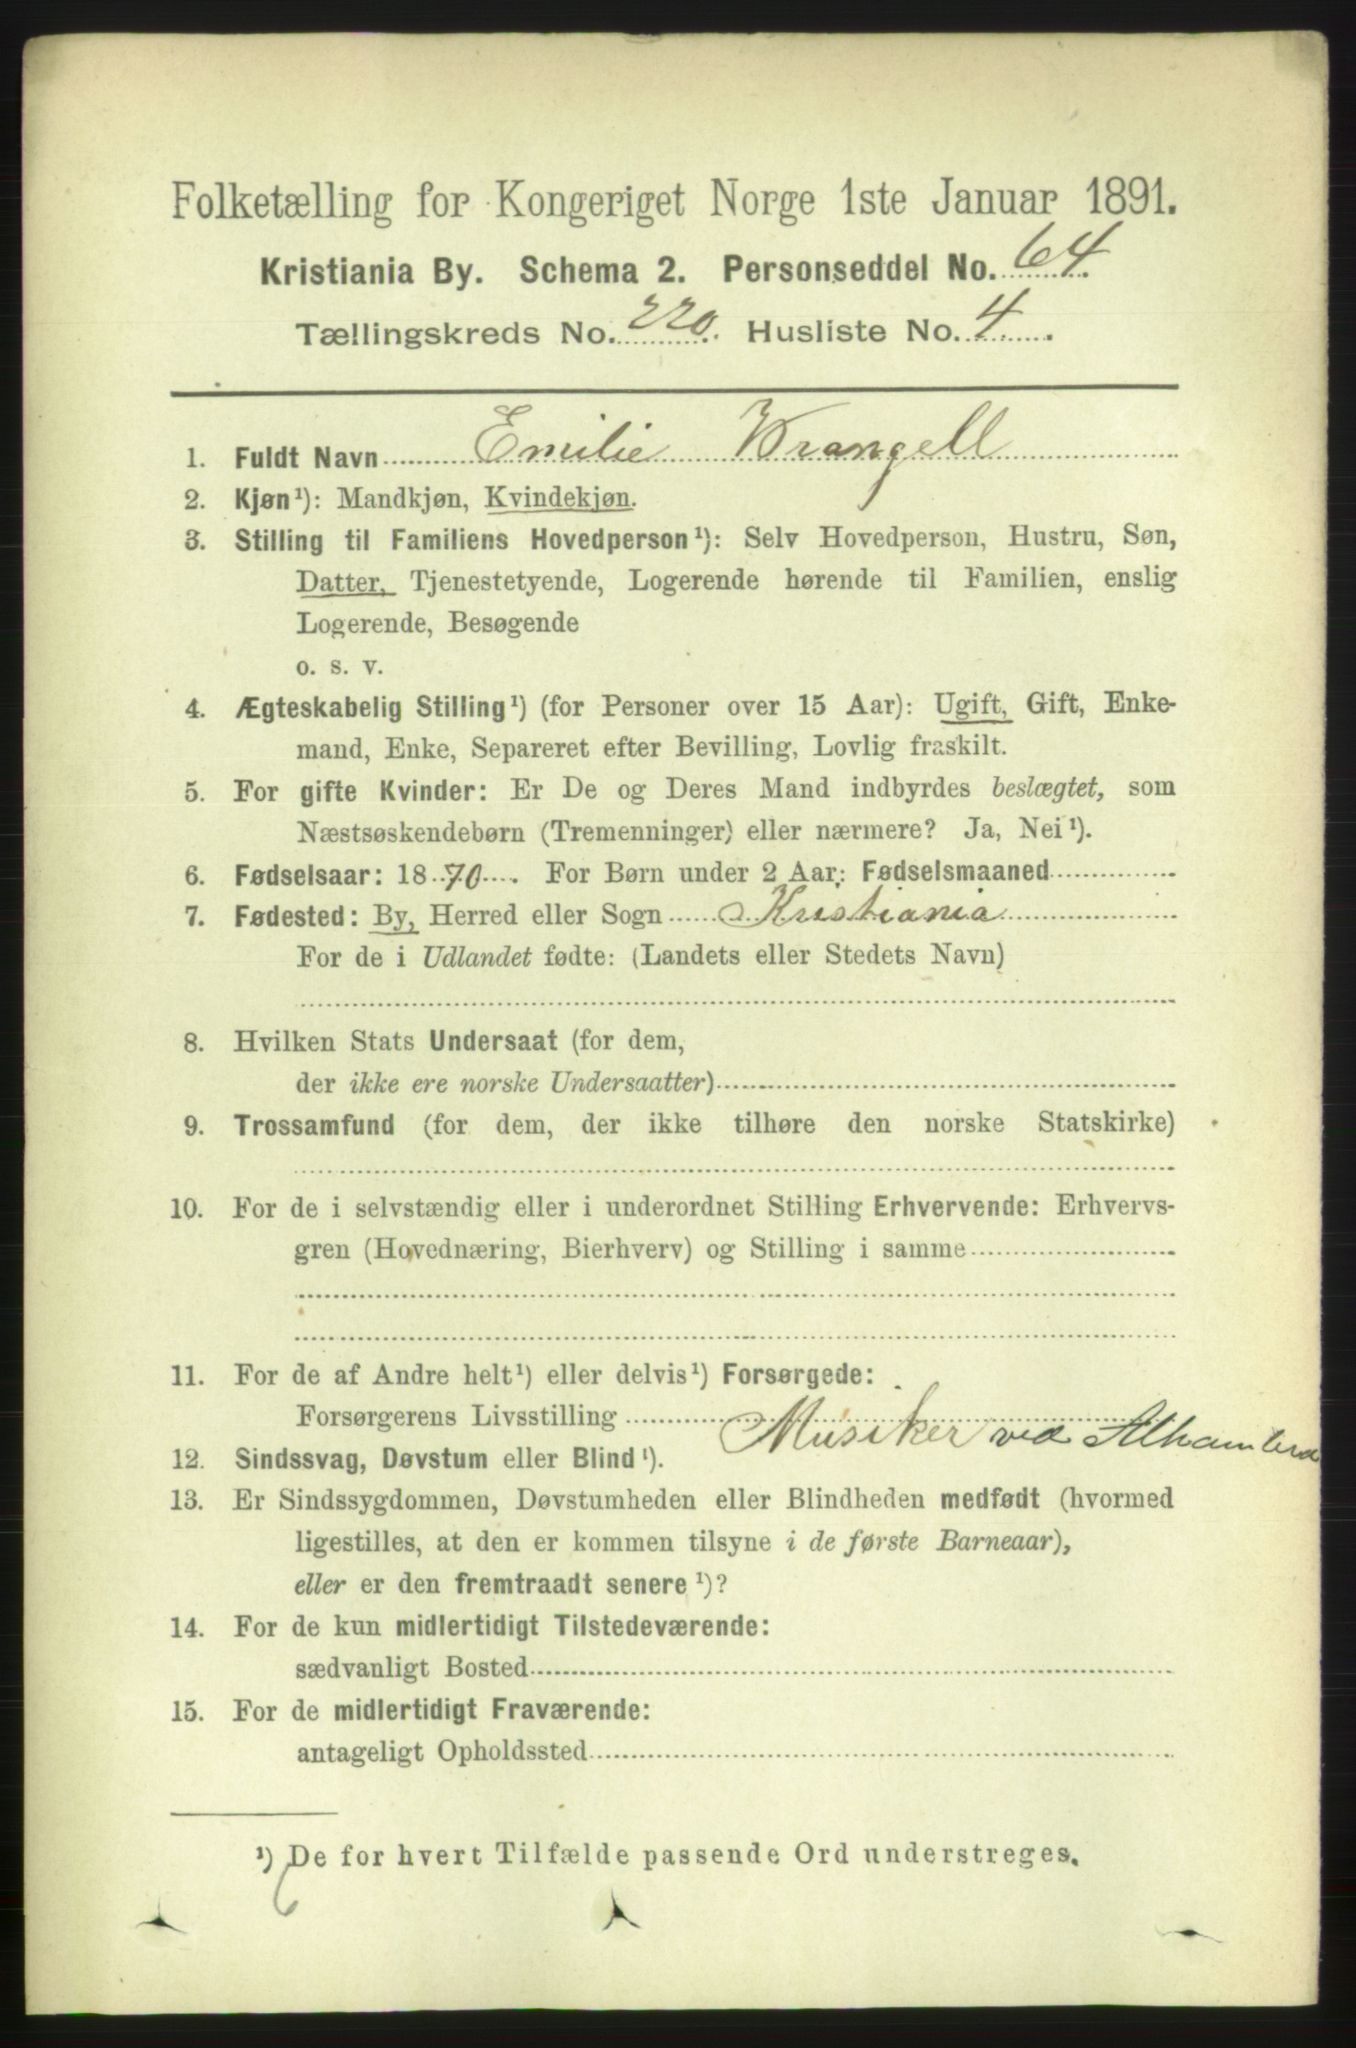 Folketælling for Kongeriget Norge 1ste Januar 1891.
Kristiania By. Schema 2. Personseddel No. 64.
Tællingskreds No. 220. Husliste No. 4.
1. Fuldt Navn Emilie Wrangell
2. Kjøn¹): Mandkjøn, Kvindekjøn.
3. Stilling til Familiens Hovedperson¹): Selv Hovedperson, Hustru, Søn,
Datter, Tjenestetyende, Logerende hørende til Familien, enslig
Logerende, Besøgende
o. s. v.
4. Ægteskabelig Stilling¹) (for Personer over 15 Aar): Ugift, Gift, Enke-
mand, Enke, Separeret efter Bevilling, Lovlig fraskilt.
5. For gifte Kvinder: Er De og Deres Mand indbyrdes beslægtet, som
Næstsøskendebørn (Tremenninger) eller nærmere? Ja, Nei¹).
6. Fødselsaar: 1870. For Børn under 2 Aar: Fødselsmaaned
7. Fødested: By, Herred eller Sogn Kristiania
For de i Udlandet fødte: (Landets eller Stedets Navn)
8. Hvilken Stats Undersaat (for dem,
der ikke ere norske Undersaatter)
9. Trossamfund (for dem, der ikke tilhøre den norske Statskirke)
10. For de i selvstændig eller i underordnet Stilling Erhvervende: Erhvervs-
gren (Hovednæring, Bierhverv) og Stilling i samme
11. For de af Andre helt¹) eller delvis¹) Forsørgede:
Forsørgerens Livsstilling Musiker ved Alhambra
12. Sindssvag, Døvstum eller Blind¹).
13. Er Sindssygdommen, Døvstumheden eller Blindheden medfødt (hvormed
ligestilles, at den er kommen tilsyne i de første Barneaar),
eller er den fremtraadt senere¹)?
14. For de kun midlertidigt Tilstedeværende:
sædvanligt Bosted
15. For de midlertidigt Fraværende:
antageligt Opholdssted
¹) De for hvert Tilfælde passende Ord understreges.